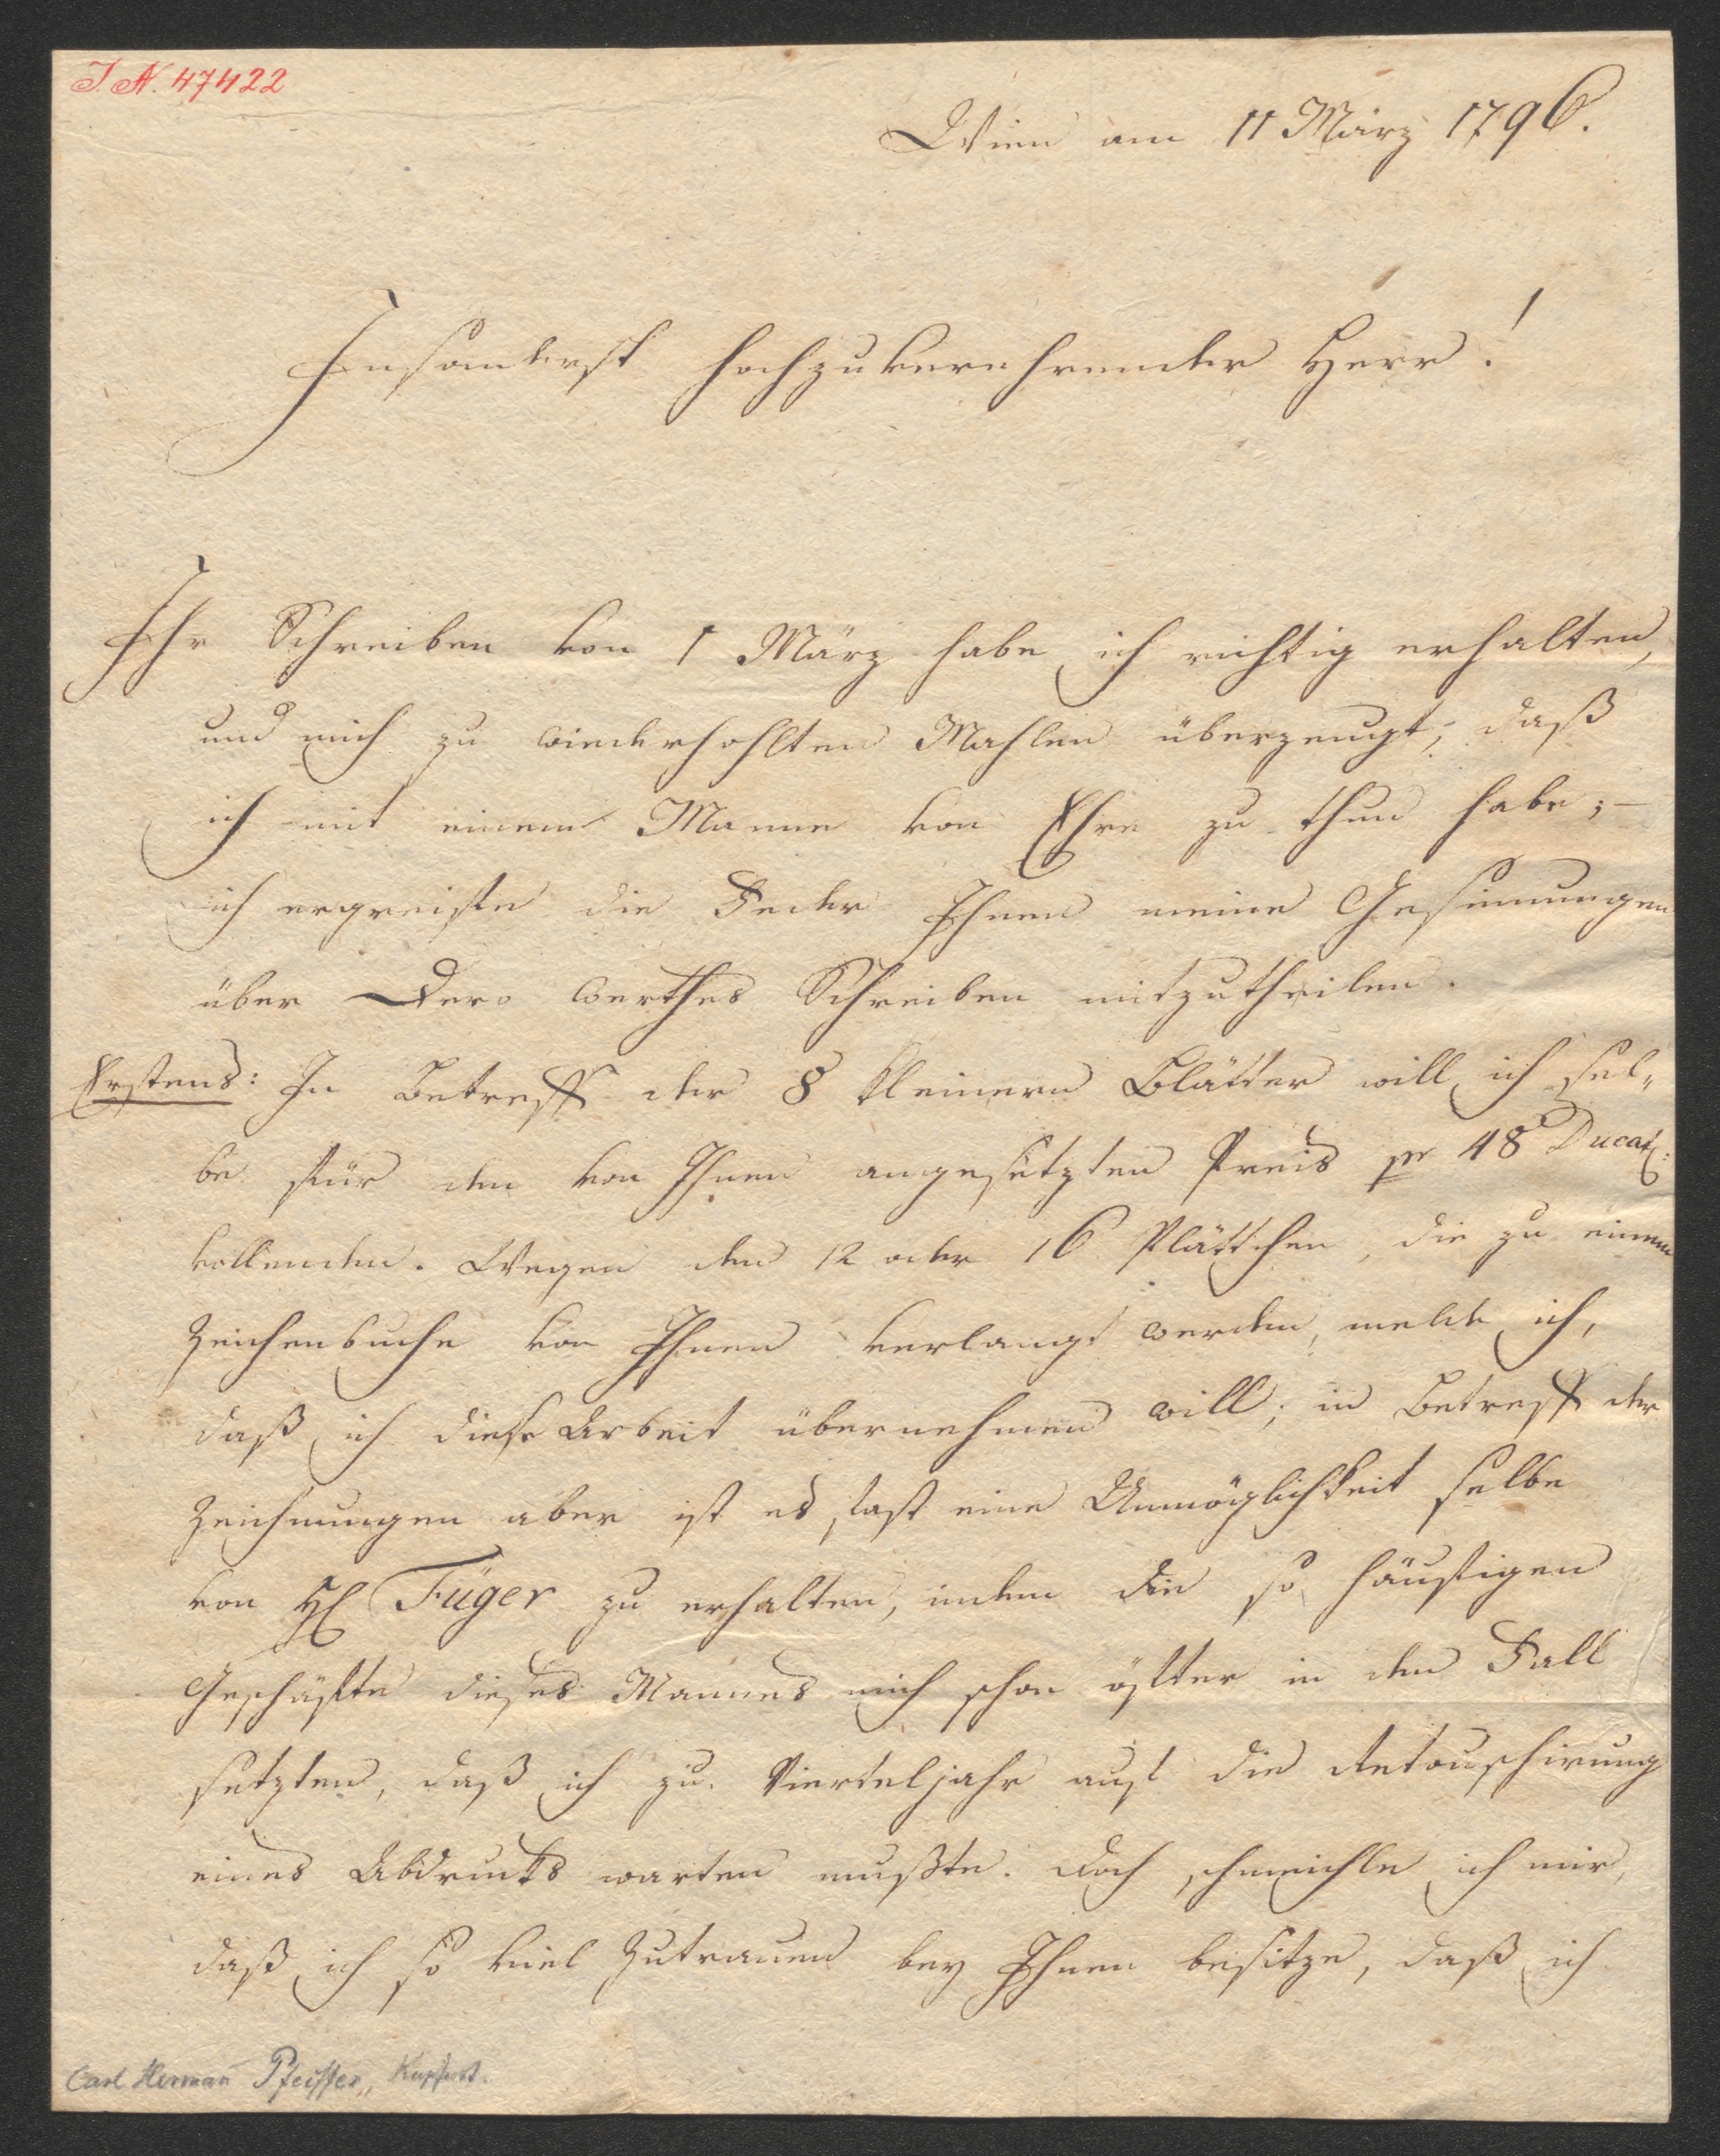 I. N. 47422
Wien am 11 März 1796.
Insonderst hochzuverehrender Herr!
Ihr Schreiben von 1 März habe ich richtig erhalten,
und mich zu wiederhohlten Mahlen überzeugt, daß
ich mit einem Manne von Ehre zu thun habe; –
ich ergreiffe die Feder Ihnen meine Gesinnungen
über Dero werthes Schreiben mitzutheilen.
Erstens: In Betreff der 8 kleinern Blätter will ich sel„
be für den von Ihnen angesetzten Preis pr 48 Ducat:
vollenden. Wegen den 12 oder 16 Plättchen, die zu einem
Zeichenbuche von Ihnen verlangt werden, melde ich,
daß ich diese Arbeit übernehmen will; in Betreff der
Zeichnungen aber ist es fast eine Unmöglichkeit selbe
von H Füger zu erhalten, indem die so häufigen
Geschäfte dieses Mannes mich schon öfter in den Fall
setzten, daß ich zu Vierteljahr auf die Retouschirung
eines Abdrucks warten mußte. Doch schmeichle ich mir,
daß ich so viel Zutrauen bey Ihnen besitze, daß ich
Carl Herman Pfeiffer, Kupferst.